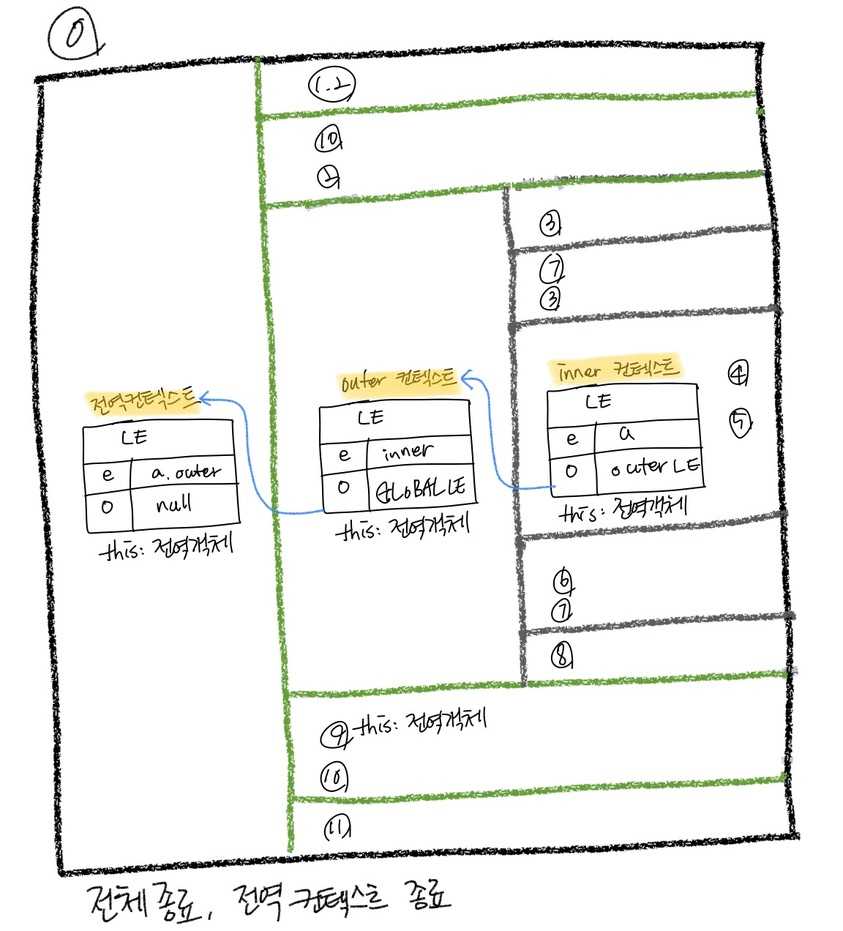 ⓪
①.②
⑩
②
③
⑦
③
전역컨텍스트
LE
e a.outer
O null
this: 전역객체
outer 컨텍스트
LE
e inner
O GLOBAL LE
this: 전역객체
inner 컨텍스트
LE
e a
O outer LE
this: 전역객체
④
⑤
⑥
⑦
⑧
⑨ this: 전역객체
⑩
⑪
전체 종료, 전역 컨텍스트 종료